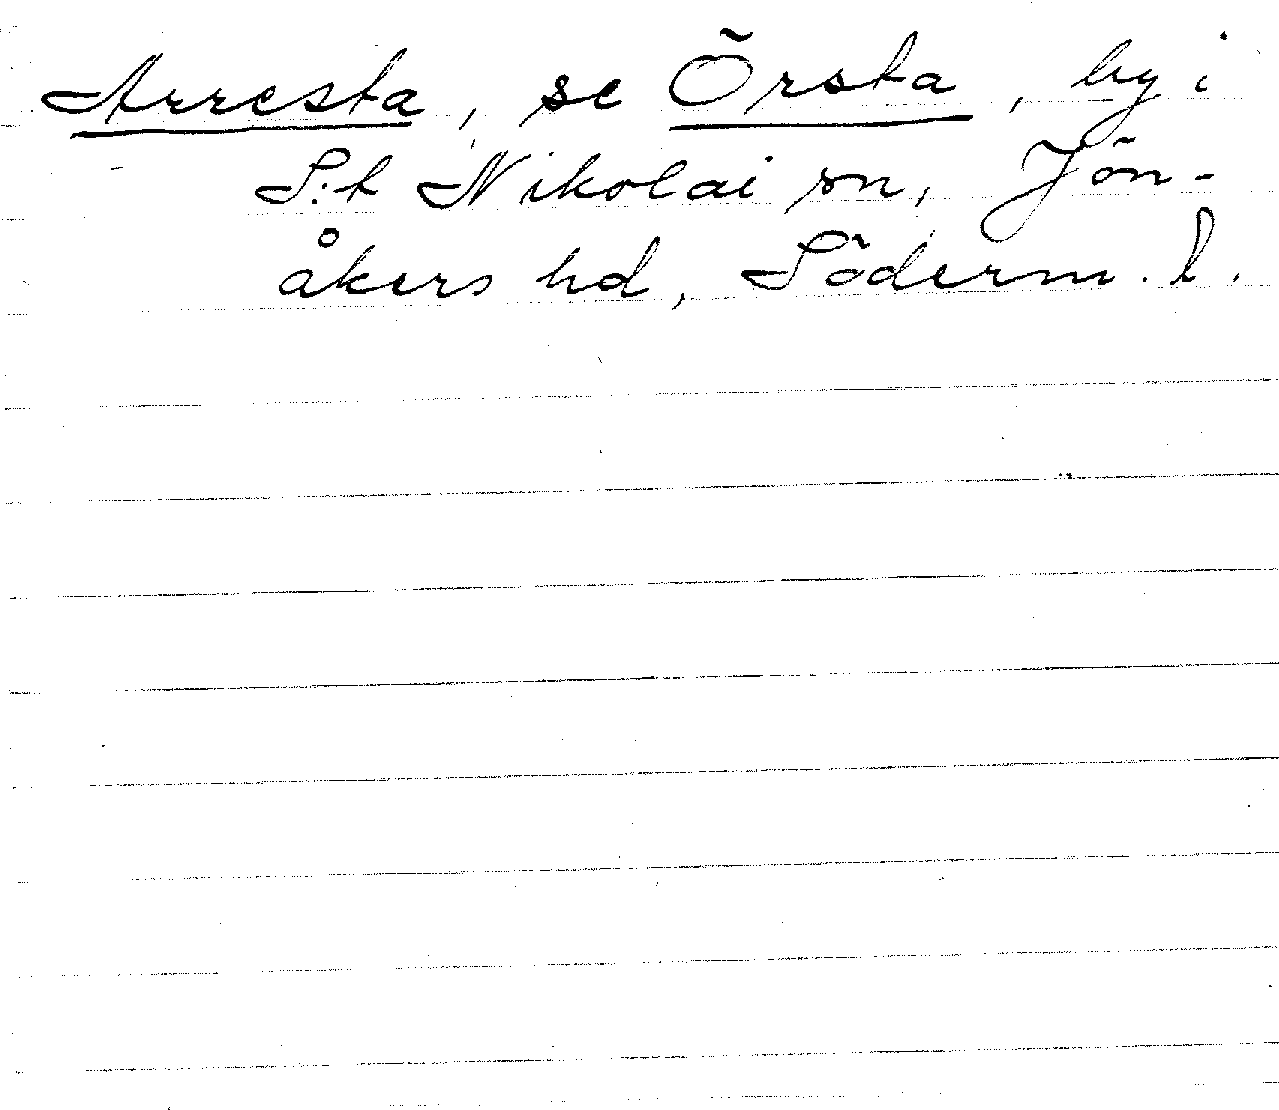 Arresta, se Örsta, by i
S:t Nikolai sn, Jön-
åkers hd, Söderm. l.